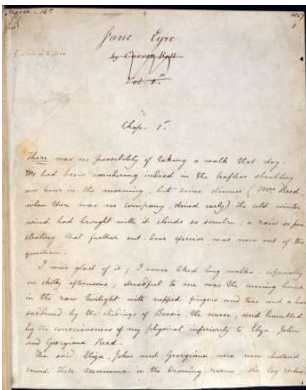 Jane Eyre
by Currer Bell
Vol. 1st
Chap. 1st
There was no possibility of taking a walk that day.
We had been wandering indeed in the leafless shrubbery
an hour in the morning, but since dinner (Mrs Reed,
when there was no company, dined early) the cold winter
wind had brought with it clouds so sombre, a rain so pene-
trating that further out-door exercise was now out of the
question.
I was glad of it; I never liked long walks – especially
on chilly afternoons; dreadful to me was the coming home
in the raw twilight with nipped fingers and toes and a heart
saddened by the chidings of Bessie, the nurse, and humbled
by the consciousness of my physical inferiority to Eliza, John
and Georgiana Reed.
The said Eliza, John and Georgiana were now clustered
round their mamma in the drawing-room; she lay reclined